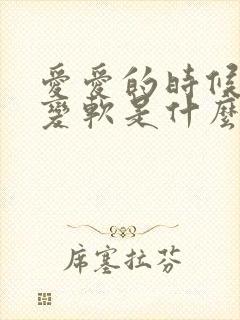 愛愛的時候
變軟是什麼
席塞拉芬